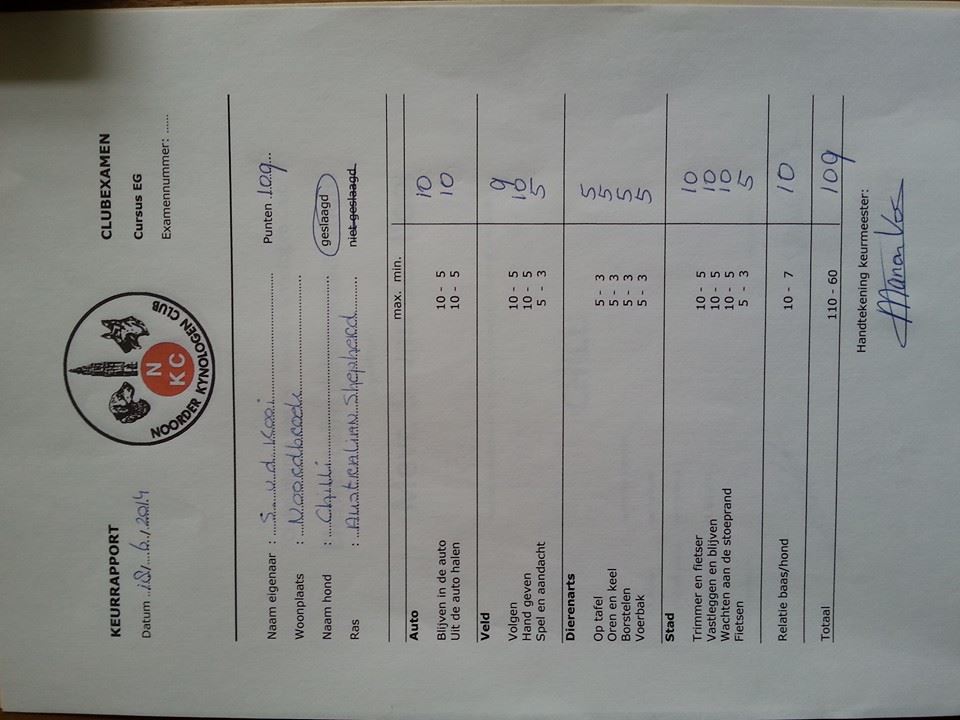 KEURRAPPORT
CLUBEXAMEN
NOORDER KYNOLOGEN CLUB
N
KC
Datum ... 6 / 2014
Cursus EG
Examennummer: ......
Naam eigenaar : S. v. d. Kooi Punten 109
Woonplaats : Noordbroek
Naam hond : Chilli geslaagd
Ras : Australian Shepherd niet geslaagd
max. min.
Auto
Blijven in de auto 10 - 5 10
Uit de auto halen 10 - 5 10
Veld
Volgen 10 - 5 9
Hand geven 10 - 5 10
Spel en aandacht 5 - 3 5
Dierenarts
Op tafel 5 - 3 5
Oren en keel 5 - 3 5
Borstelen 5 - 3 5
Voerbak 5 - 3 5
Stad
Trimmer en fietser 10 - 5 10
Vastleggen en blijven 10 - 5 10
Wachten aan de stoeprand 10 - 5 10
Fietsen 5 - 3 5
Relatie baas/hond 10 - 7 10
Totaal 110 - 60 109
Handtekening keurmeester:
Manon Vos